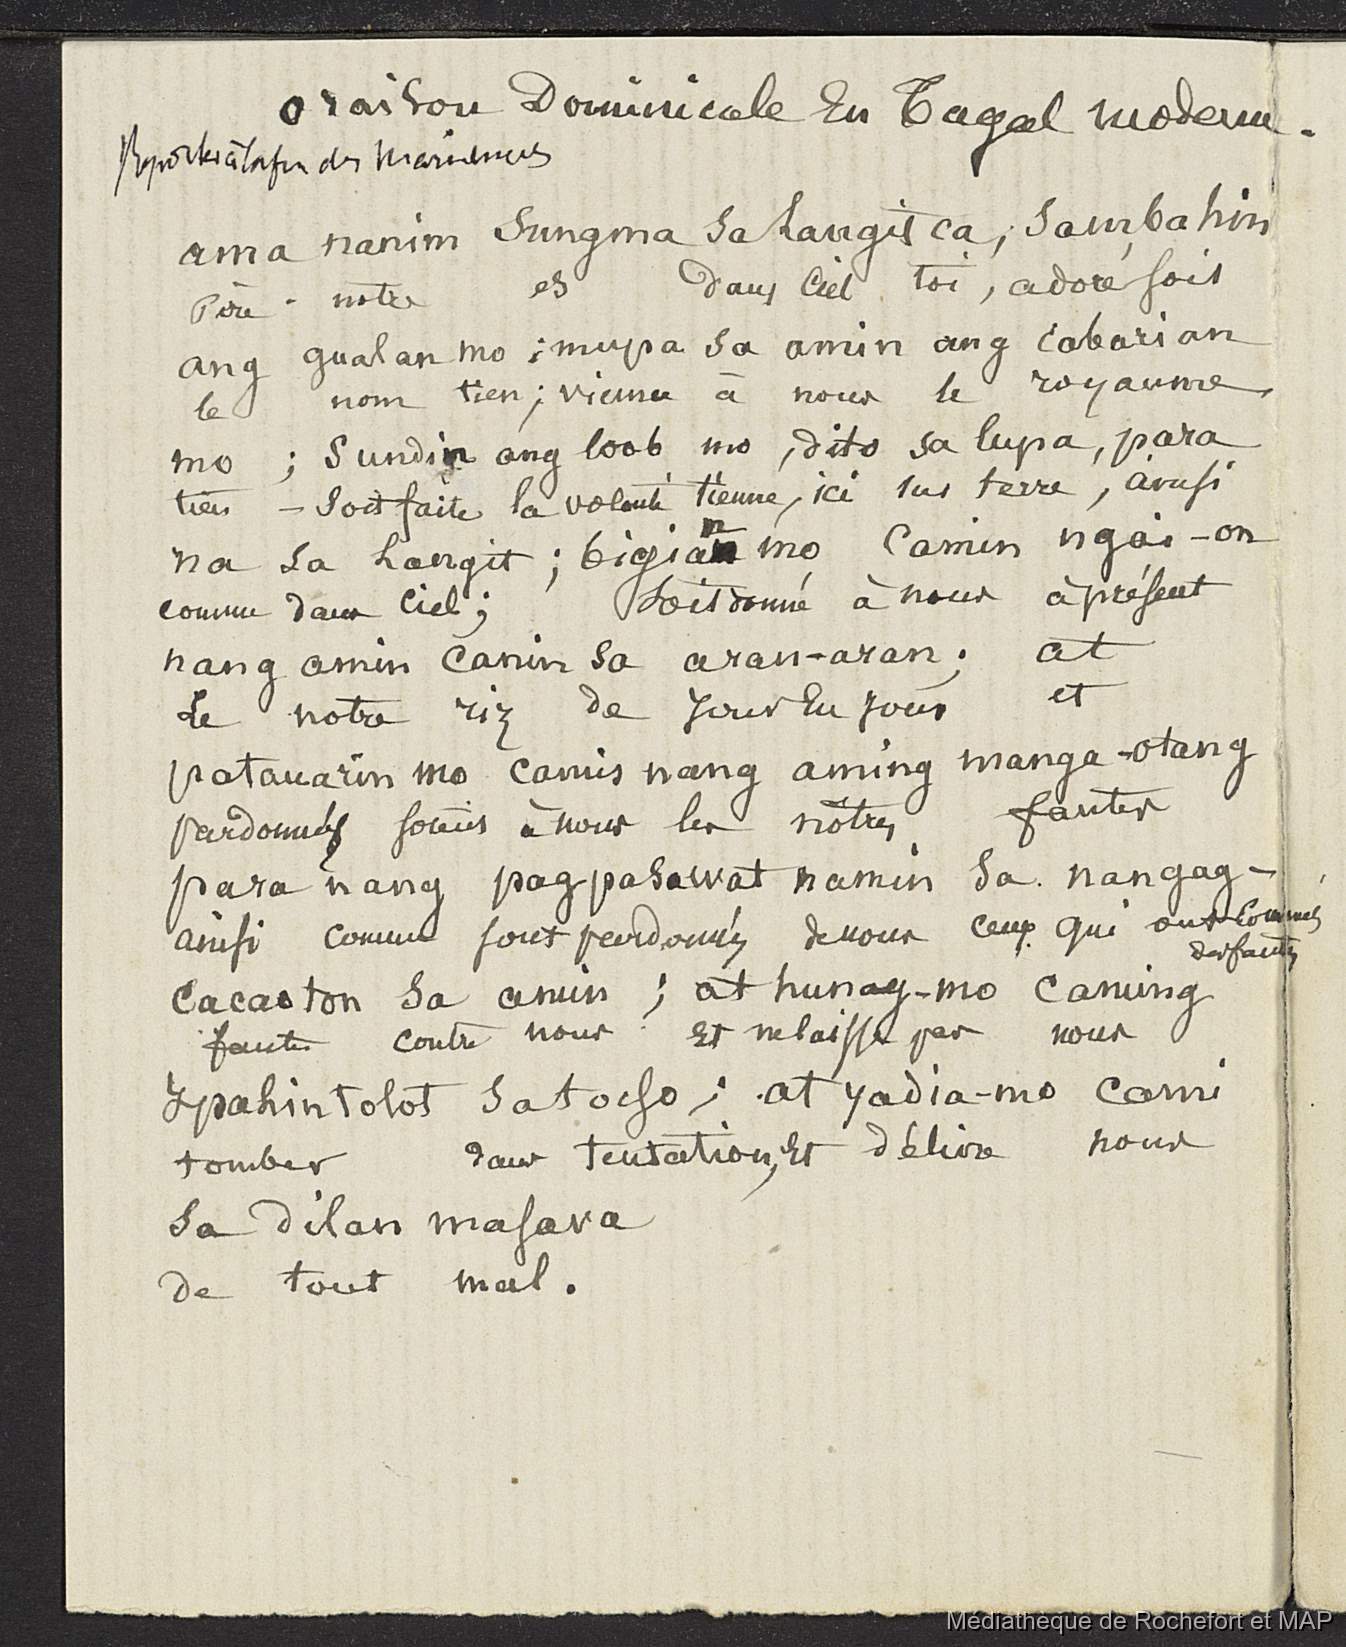 oraison Dominicale En Tagal moderne.
Reportés à la fin des Mariannes
ama nanim Sungma Sa Langit ca, Sambahin
Père notre es dans Ciel toi, adoré sois
ang gualan mo ; mupa sa amin ang cabarian
le nom tien ; vienne à nous le royaume
mo ; Sundin ang loob mo , dito sa lupa, para
tien - Soit faite la volonté tienne, ici sur terre, ainsi
na sa langit ; bigian mo Camin ngai-on
comme dans Ciel ; Soit donné à nous à présent
nang amin Canin Sa aran-aran ; at
Le notre riz de Jour En Jour et
patauarin mo camis nang aming manga-otang
pardonnés soient à nous les nôtres fautes
para nang pagpasawat namin Sa nangag-
ainsi comme sont pardonnés de nous ceux qui ont Commis
des fautes
Cacaoton Sa amin ; at hunag-mo Caming
fautes contre nous Et ne laisse pas nous
ypahintolot Sa tocso ; at yadia-mo Cami
tomber dans tentation, Et délivre nous
Sa dilan masava
de tout mal.
Médiathèque de Rochefort et MAP